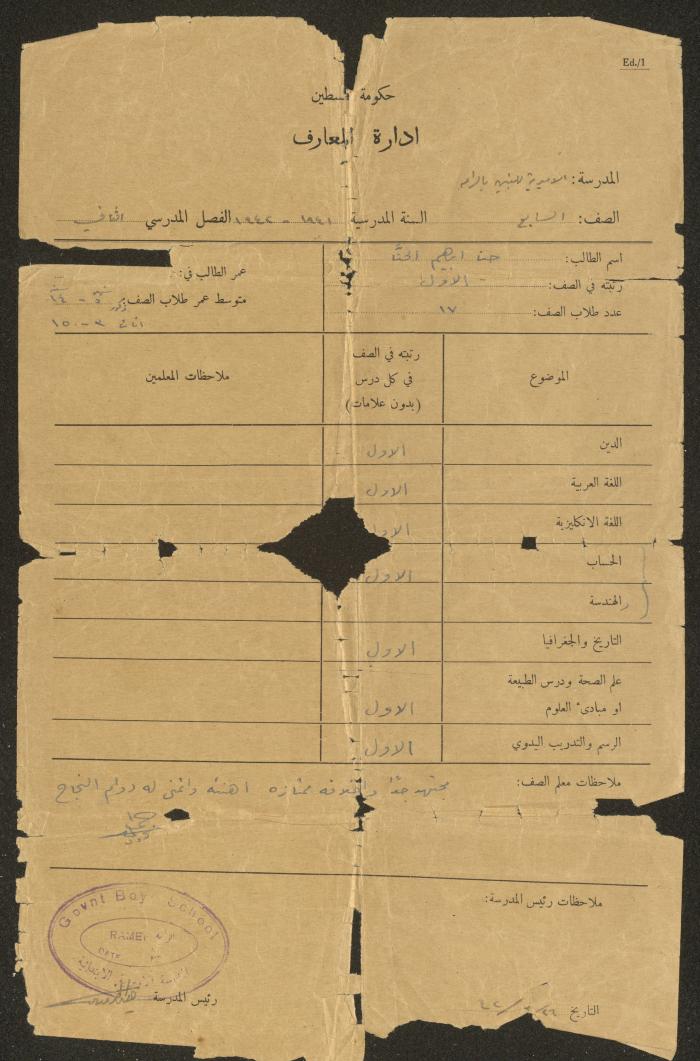 Ed./1
حكومة فلسطين
ادارة المعارف
المدرسة: الاميرية للبنين بالرامه
الصف: السابع السنة المدرسية ١٩٤١ - ١٩٤٢ الفصل المدرسي الثاني
اسم الطالب: حنا ابرهيم الحنا
رتبته في الصف: الاول
عدد طلاب الصف: ١٧
عمر الطالب في:
متوسط عمر طلاب الصف:
الموضوع
رتبته في الصف
في كل درس
(بدون علامات)
ملاحظات المعلمين
الدين الاول
اللغة العربية الاول
اللغة الانكليزية الاول
الحساب الاول
الهندسة
التاريخ والجغرافيا الاول
علم الصحة ودرس الطبيعة
او مبادئ العلوم الاول
الرسم والتدريب اليدوي الاول
ملاحظات معلم الصف: مجتهد جدًا واخلاقه ممتازه اهنئه واتمنى له دوام النجاح
ملاحظات رئيس المدرسة:
Govnt Boys School
RAMEH
الرامه
DATE
رئيس المدرسة
التاريخ